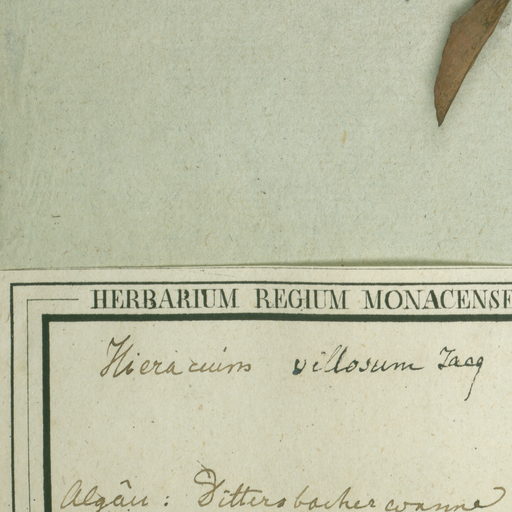 HERBARIUM REGIUM MONACENSE
Hieracium villosum Jacq
Algäu: Dittersbacherwanne